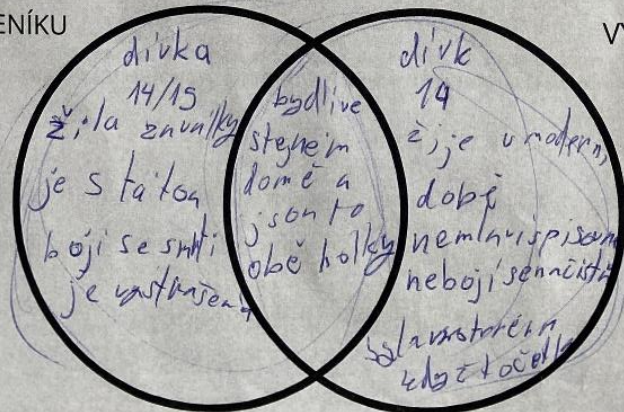 ENÍKU
VY
dívka
14/15
žila
je s tatou
bojí se smrti
je vystrašená
bydlí ve
stejném
domě a
jsou to
obě holky
dívk
14
žije v moderní
době
nemluví spisovně
nebojí se
když